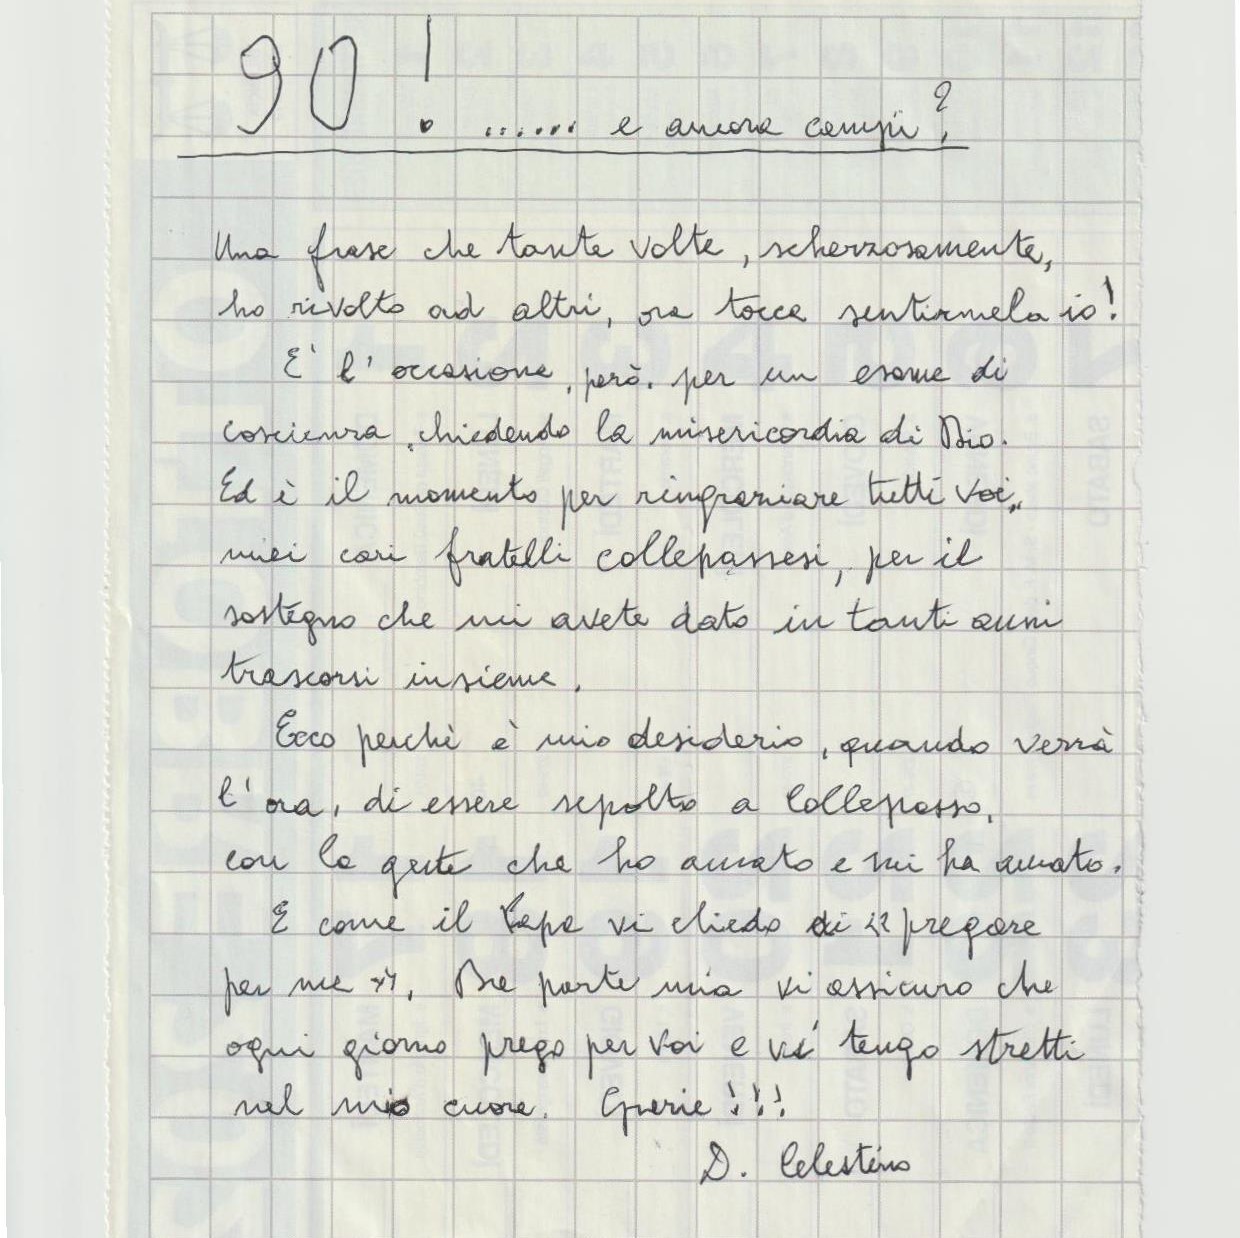 90! ....... e ancora campi?
Una frase che tante volte, scherzosamente,
ho rivolto ad altri, ora tocca sentirmela io!
E' l'occasione, però, per un esame di
coscienza, chiedendo la misericordia di Dio.
Ed è il momento per ringraziare tutti voi,
miei cari fratelli collepassesi, per il
sostegno che mi avete dato in tanti anni
trascorsi insieme.
Ecco perchè è mio desiderio, quando verrà
l'ora, di essere sepolto a Collepasso,
con la gente che ho amato e mi ha amato.
E come il Papa vi chiedo di << pregare
per me >>. Da parte mia vi assicuro che
ogni giorno prego per voi e vi tengo stretti
nel mio cuore. Grazie!!!
D. Celestino